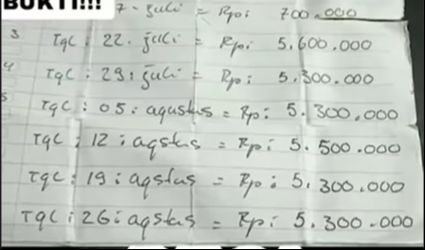 BUKTI!!!
7. Juli = Rp: 700.000
3 Tgl: 22. Juli = Rp: 5.600.000
4 Tgl: 29: Juli = Rp: 5.300.000
5 Tgl: 05: agustus = Rp: 5.300.000
Tgl: 12: agstus = Rp: 5.500.000
Tgl: 19: agstus = Rp: 5.300.000
Tgl: 26: agstus = Rp: 5.300.000